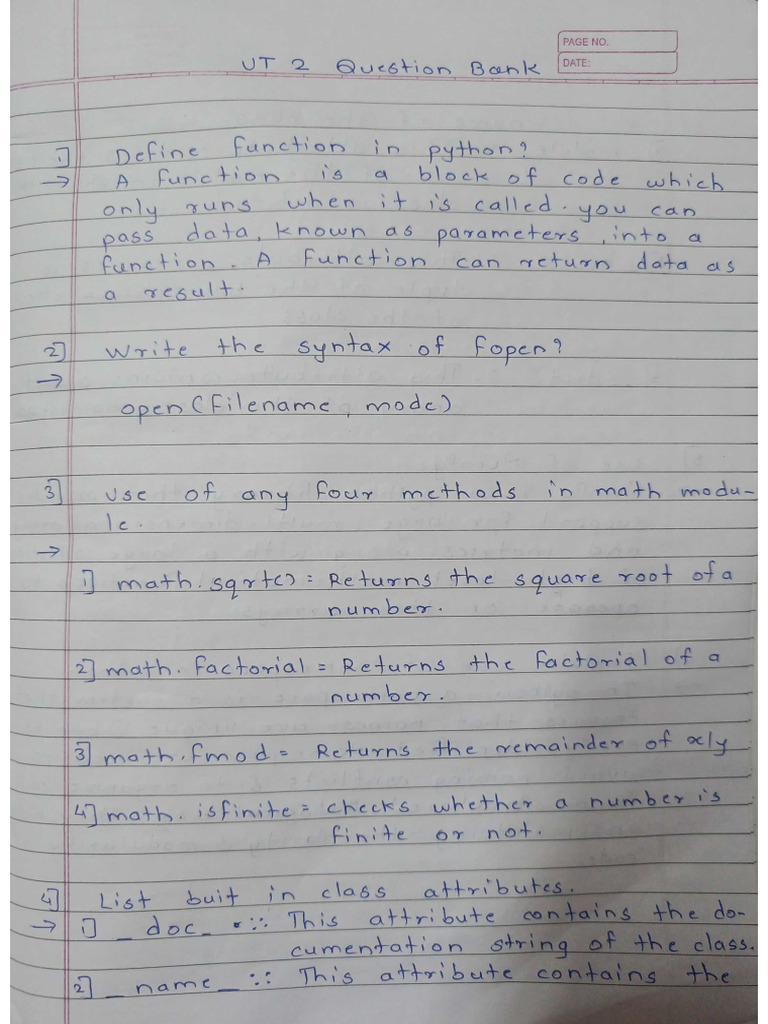 PAGE NO.
DATE:
UT 2 Question Bank
1] Define function in python?
→ A function is a block of code which
only runs when it is called. you can
pass data, known as parameters, into a
function. A function can return data as
a result.
2] Write the syntax of fopen?
→
open(filename, mode)
3] Use of any four methods in math modu-
le.
→
1] math.sqrt() = Returns the square root of a
number.
2] math.factorial = Returns the factorial of a
number.
3] math.fmod = Returns the remainder of x/y
4] math.isfinite = checks whether a number is
finite or not.
4] List buit in class attributes.
→ 1] _doc_ :: This attribute contains the do-
cumentation string of the class.
2] _name_ :: This attribute contains the